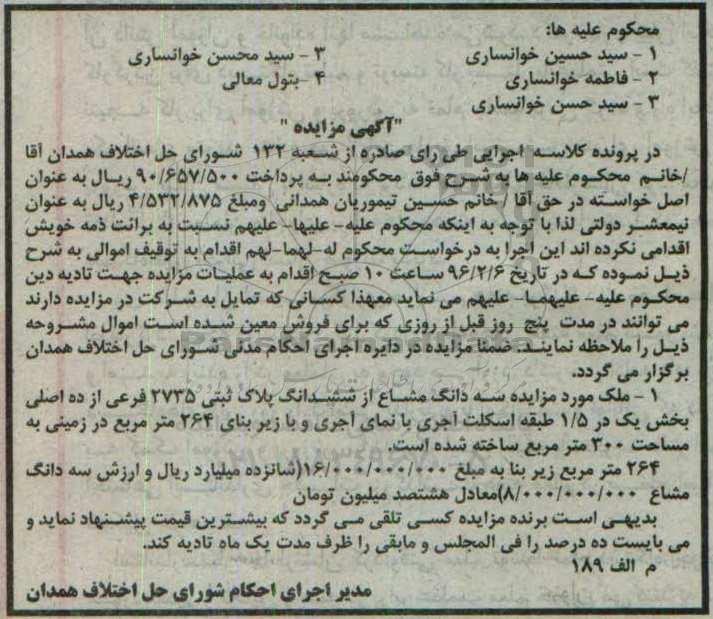 محکوم علیه ها:
۱ - سید حسین خوانساری
۲ - فاطمه خوانساری
۳ - سید حسن خوانساری
۳ - سید محسن خوانساری
۴ - بتول معالی
"آگهی مزایده "
در پرونده کلاسه اجرایی طی رای صادره از شعبه ۱۳۲ شورای حل اختلاف همدان آقا
/خانم محکوم علیه ها به شرح فوق محکومند به پرداخت ۹۰/۶۵۷/۵۰۰ ریال به عنوان
اصل خواسته در حق آقا / خانم حسین تیموریان همدانی ومبلغ ۴/۵۳۲/۸۷۵ ریال به عنوان
نیمعشر دولتی لذا با توجه به اینکه محکوم علیه- علیها- علیهم نسبت به برائت ذمه خویش
اقدامی نکرده اند این اجرا به درخواست محکوم له-لهما-لهم اقدام به توقیف اموالی به شرح
ذیل نموده که در تاریخ ۹۶/۲/۶ ساعت ۱۰ صبح اقدام به عملیات مزایده جهت تادیه دین
محکوم علیه- علیهما- علیهم می نماید معهذا کسانی که تمایل به شرکت در مزایده دارند
می توانند در مدت پنج روز قبل از روزی که برای فروش معین شده است اموال مشروحه
ذیل را ملاحظه نمایند. ضمنا مزایده در دایره اجرای احکام مدنی شورای حل اختلاف همدان
برگزار می گردد.
۱ - ملک مورد مزایده سه دانگ مشاع از ششدانگ پلاک ثبتی ۲۷۳۵ فرعی از ده اصلی
بخش یک در ۱/۵ طبقه اسکلت آجری با نمای آجری و با زیر بنای ۲۶۴ متر مربع در زمینی به
مساحت ۳۰۰ متر مربع ساخته شده است.
۲۶۴ متر مربع زیر بنا به مبلغ ۱۶/۰۰۰/۰۰۰/۰۰۰(شانزده میلیارد ریال و ارزش سه دانگ
مشاع ۸/۰۰۰/۰۰۰/۰۰۰)معادل هشتصد میلیون تومان
بدیهی است برنده مزایده کسی تلقی می گردد که بیشترین قیمت پیشنهاد نماید و
می بایست ده درصد را فی المجلس و مابقی را ظرف مدت یک ماه تادیه کند.
م الف ۱۸۹
مدیر اجرای احکام شورای حل اختلاف همدان